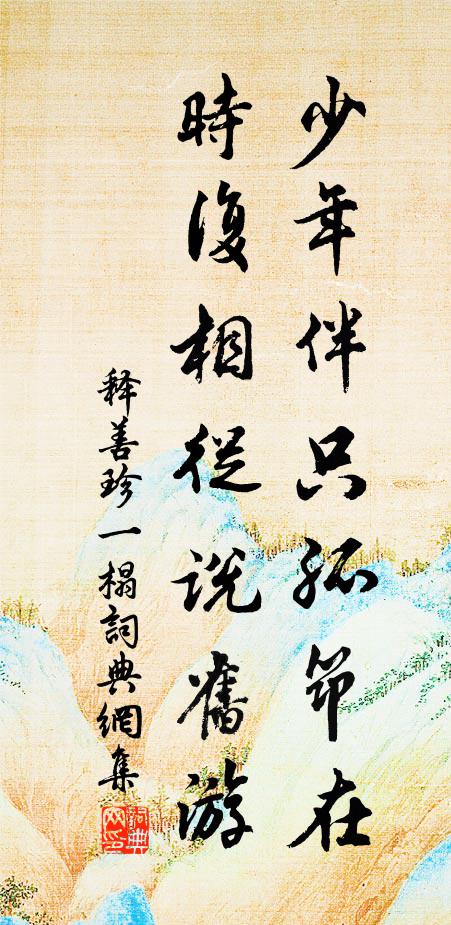 少年伴只孤筇在
時復相從説舊游
释善珍一榻詞典網集
詞典
网印